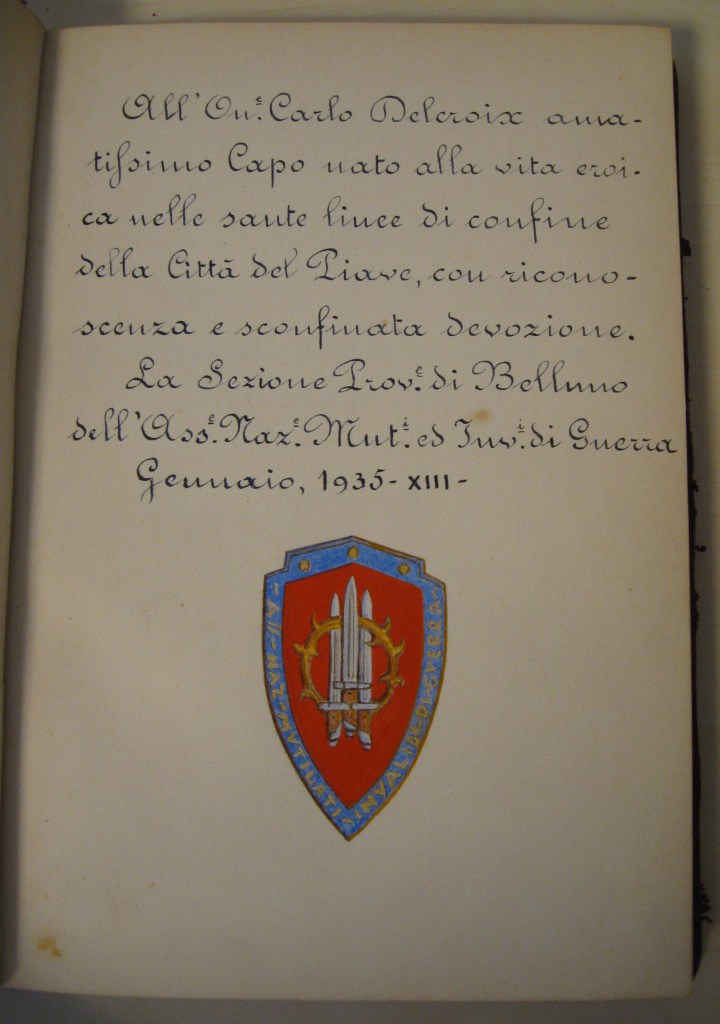 All'On.e Carlo Delcroix ama-
tissimo Capo nato alla vita eroi-
ca nelle sante linee di confine
della Città del Piave, con ricono-
scenza e sconfinata devozione.
La Sezione Prov.e di Belluno
dell'Ass.e Naz.e Mut.i ed Inv.i di Guerra
Gennaio, 1935-XIII-
ASS·NAZ·MVTILATI·INVALIDI·DI·GVERRA